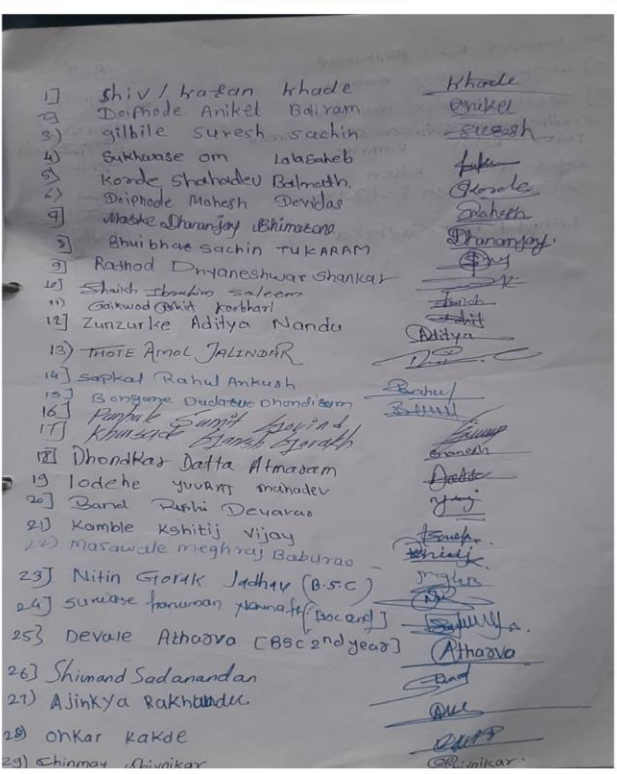 1] Shiv / Kazan Khade Khade
2] Doiphode Aniket Baliram Aniket
3) gilbile suresh sachin Suresh
4) Sukhwase om Lalasaheb
5) Korde Shahadev Balnath. Korde
6) Doiphode Mahesh Devidas Mahesh
9] Maske Dhananjay Bhimarao Dhananjay.
8] Bhuibhar Sachin TUKARAM
9] Rathod Dnyaneshwar Shankar
10] Shaikh Ibrahim Saleem Shaikh
11) Gaikwad Karbhari
12] Zunzurke Aditya Nandu Aditya
13) THOTE AMOL JALINDAR
14] Sapkal Rahul Ankush Rahul
15] Bongane Dhondiram
16] Sumit Govind
17] Ganesh Gorakh Ganesh
18] Dhondkar Datta Atmaram Datta
19 lodehe yuvraj mahadev yuvraj
20] Band Devarao
21] Kamble Kshitij Vijay
22) Masawale meghraj Baburao
23] Nitin Gorak Jadhav (B.S.C)
24] Surwase hanuman [BSC 2nd]
25} Devale Atharva [BSC 2nd year] Atharva
26] Shimand Sadanandan
27) Ajinkya
28) Onkar Kakde
29) Chinmay Shivnikar Shivnikar.